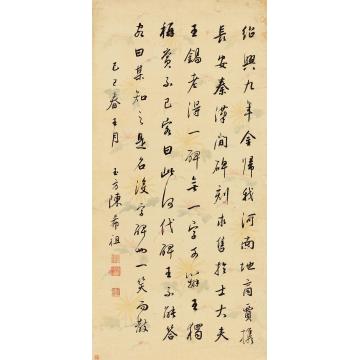 紹興九年金歸我河南地商賈攜
長安秦漢間碑刻求售於士大夫
王錫老得一碑無一字可辨王獨
稱賞不已客曰此何代碑王不能答
客曰某知之是名沒字碑也一笑而散
己巳春王月 玉方陳希祖